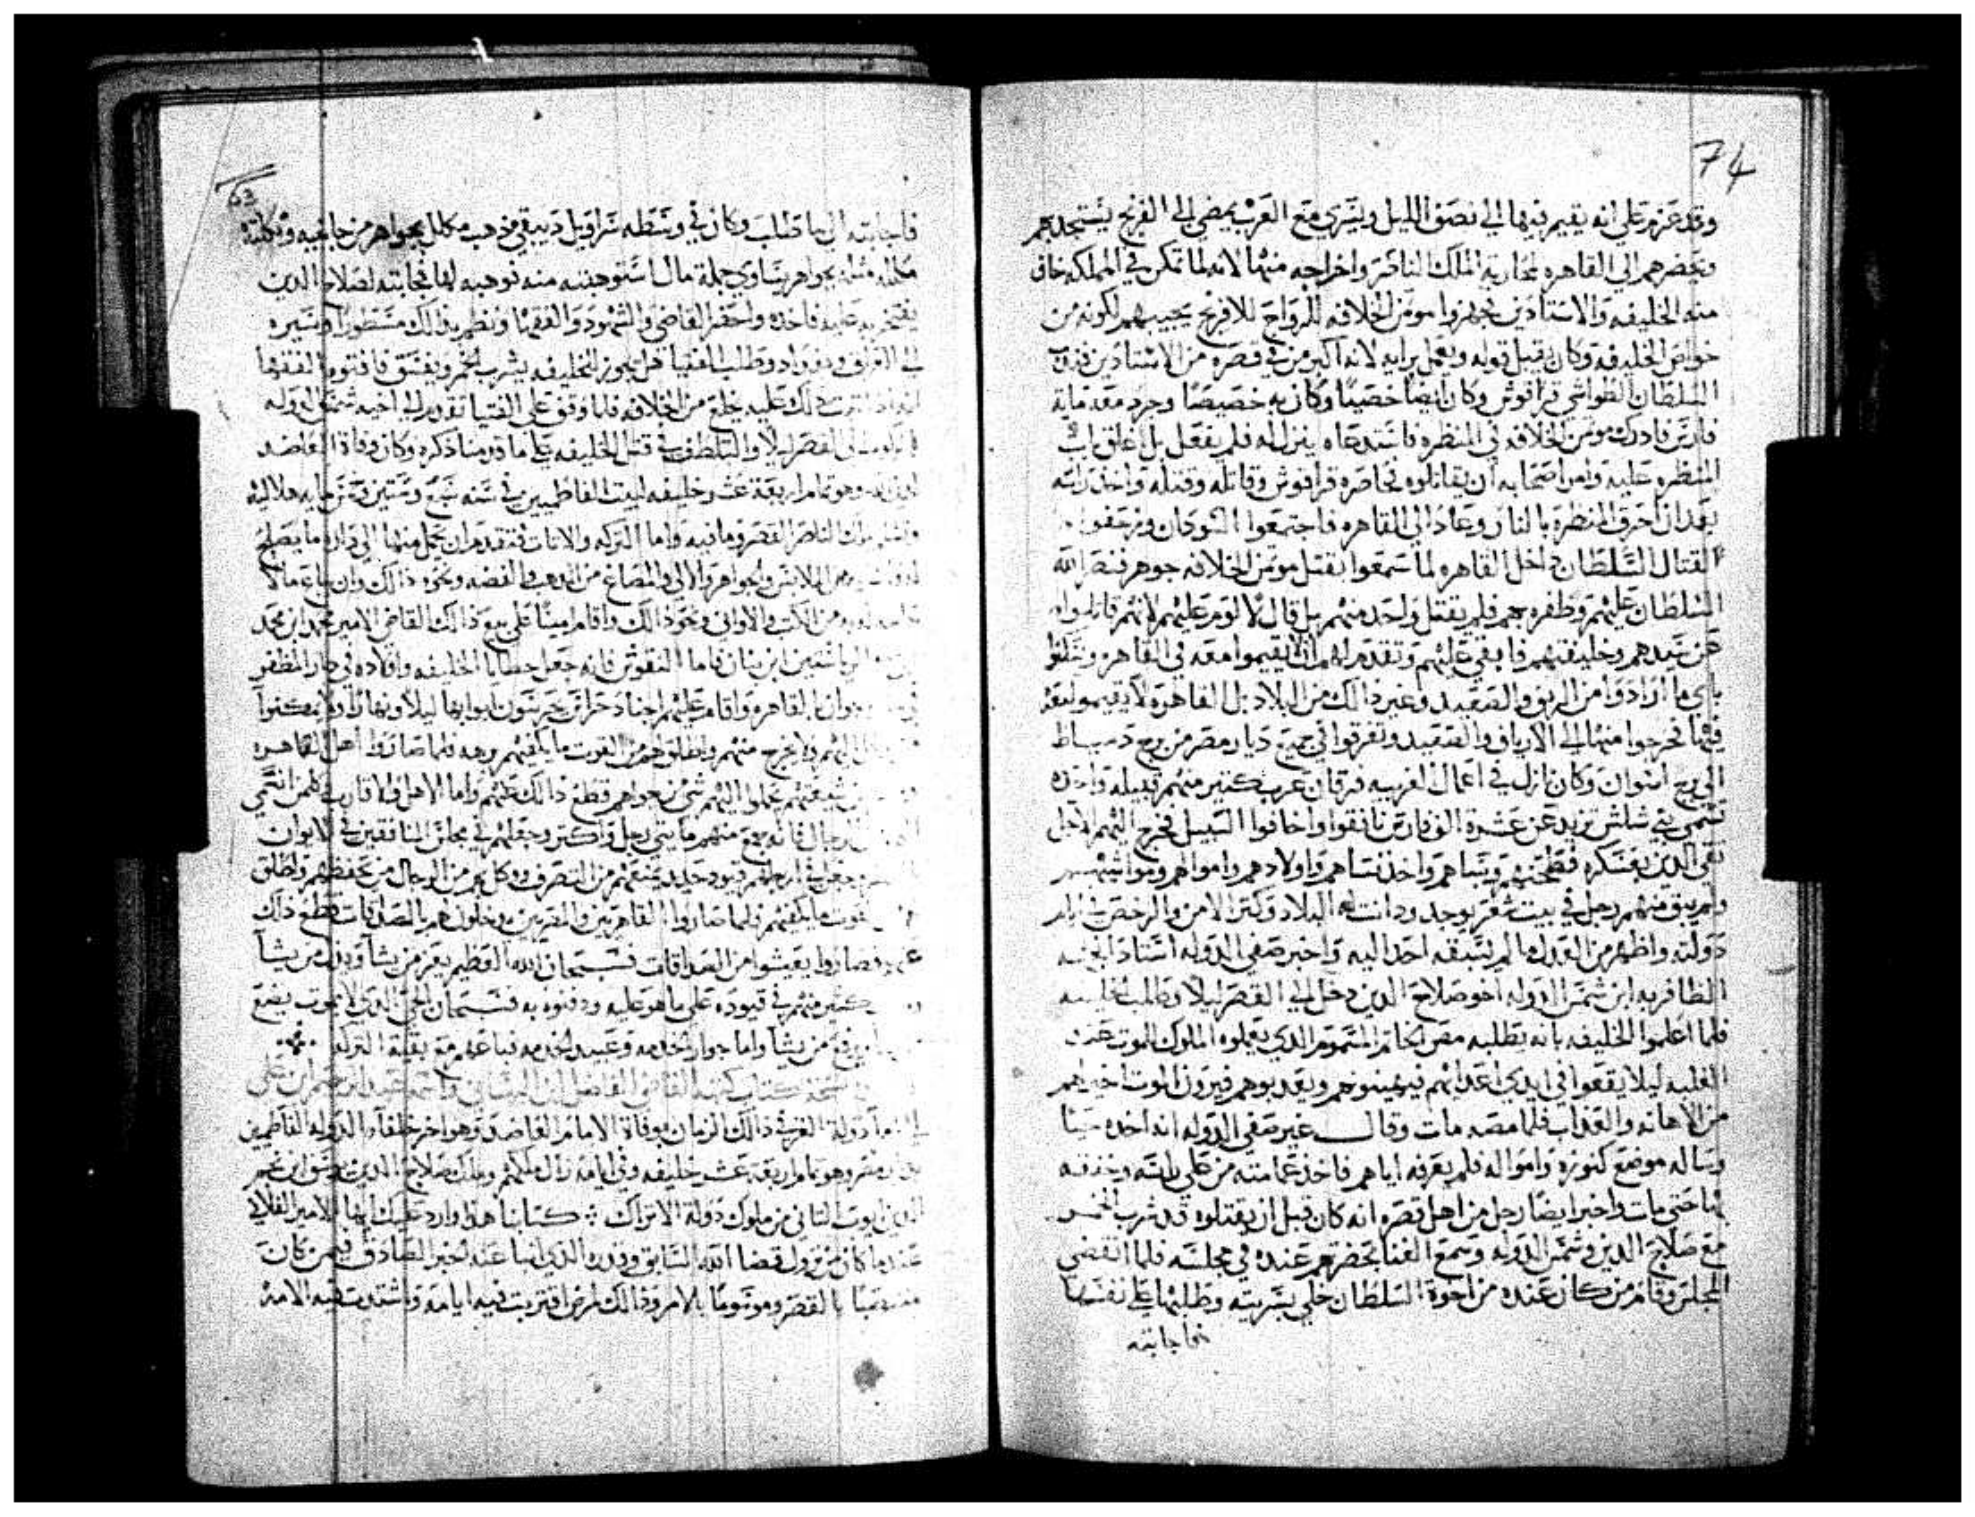 74
وقد عزم على انه يقيم فيها الى نصف الليل ويسرى مع العرب يمضى الى الفرنج يستنجد بهم
ويحضرهم الى القاهره لمحاربة الملك الناصر واخراجه منها لانه لما تمكن في المملكه خاف
منه الخليفه والاستادين جهزوا موتمن الخلافه للرواح للافرنج يجيبهم لكونه من
خواص الخليفه وكان يقبل قوله ويعمل برايه لانه اكبر من في قصره من الاستادين فندب
السلطان الطواشي قراقوش وكان ايضا خصيا وكان به خصيصا وجرد معه ماية
فارس فادرك موتمن الخلافه في المنظره فاستدعاه ينزل له فلم يفعل بل اغلق باب
المنظره عليه وامر اصحابه ان يقاتلوه فحاصره قراقوش وقاتله وقتله واخذ راسه
بعد ان احرق المنظرة بالنار وعاد الى القاهره فاجتمعوا السودان وزحفوا
القتال السلطان داخل القاهره لما سمعوا بقتل موتمن الخلافه جوهر فنصر الله
السلطان عليهم وظفره بهم فلم يقتل واحد منهم بل قال لا لوم عليهم لانهم قاتلوا
عن سيدهم وخليفتهم فابقى عليهم وتقدم لهم ان لا يقيموا معه في القاهره
باى ما ارادوا من الريف والصعيد وغير ذالك من البلاد بل القاهرة لا يقيموا معه
فيها فخرجوا منها الى الارياف والصعيد وتفرقوا في جميع ديار مصر من برج دمياط
الى برج اسوان وكان نازل في اعمال الغربيه فرقان عرب كتير منهم قبيله واحده
تسمى بني شلش تزيد عن عشرة الوف فارس نافقوا واخافوا السبيل فخرج اليهم الاجل
تقى الدين بعسكره فطحنهم وسباهم واخذ نساهم واولادهم واموالهم ومواشيهم
ولم يبق منهم رجل في بيت شعر يوجد ودانت له البلاد وكتر الامن والرخص في ايام
دولته واظهر من العدل ما لم يسبقه احد اليه واخبر صفى الدوله استاد
الظافر به ابن شمس الدوله اخو صلاح الدين دخل الى القصر ليلا وطلب الخليفه
فلما اعلموا الخليفه بانه يطلبه مص الخاتم المسموم الذي يعملوه الملوك للموت عند
الغلبه ليلا يقعوا في ايدى اعدايهم فيهينوهم ويعدبوهم فيرون الموت اخير لهم
من الاهانه والعداب فلما مصه مات وقال غير صفى الدوله انه اخده
وساله موضع كنوزه وامواله فلم يعرفه اياهم فاخذ عمامته من على راسه وخنقه
بها حتى مات واخبر ايضا رجل من اهل قصره انه كان قبل ان يقتلوه قد شرب الخمر
مع صلاح الدين وشمس الدوله وسمع الغنا بحضرتهم عنده في مجلسه فلما انقضى
المجلس وقام من كان عنده من اخوة السلطان خلي بسريته وطلبها على نفسها
فاجابته
63
فاجابته الى ما طلب وكان في وسطه سراويل دبيقي مذهب مكلل بجواهر من جانبيه وتكته
مكلله مثله بجواهر يساوي جملة مال استوهبته منه فوهبه لها فجابته لصلاح الدين
يفتخر به عليه فاخده واحضر القاضي والشهود والفقها ونظم بذلك مسطورا وسيره
الى العراق وطلب الفتيا هل يجوز لخليفه يشرب الخمر ويفسق فافتوه الفقها
ذلك وعليه خلع من الخلافه فلما وقف على الفتيا تقدم الى اخيه شمس الدوله
القصر ليلا والتلطف في قتل الخليفه على ما قدمنا ذكره وكان وفاة العاضد
لدين الله وهو تمام اربعة عشر خليفه لبيت الفاطميين في سنه سبع وستين وخمس مايه هلاليه
الملك الناصر القصر وما فيه واما التركه والاتات فتقدم ان يحمل منها الى داره ما يصلح
الملابس والجواهر والالى والمصاغ من الدهب والفضه ونحو ذالك وان يباع ما لا
من الكتب والاواني ونحو ذالك واقام امينا على بيع ذالك القاضي الامير محمد ابن محمد
ابن بنان فاما النفوس فانه جعل حظايا الخليفه واولاده في دار المظفر
بالقاهره واقام عليهم اجناد حراس يحرسون ابوابها ليلا ونهارا ولا يمكنوا
اليهم ولا يخرج منهم واطلق لهم من القوت ما يكفيهم وهم فلما صاروا اهل القاهره
شيعتهم يحملوا اليهم شى من جواهم قطع ذالك عنهم واما الاهل والاقارب كلمن انتمى
رجال فانه جمع منهم مايتي رجل واكتر وجعلهم في مجلس المنافقين في الايوان
وجعل في ارجلهم قيود حديد يمنعهم من التصرف ووكل بهم من الرجال من يحفظهم واطلق
القوت ما يكفيهم فلما صاروا القاهريين والمصريين يدخلون لهم بالصدقات قطع ذلك
عنهم فصاروا يعيشوا من الصداقات فسبحان الله العظيم يعز من يشا ويذل من يشا
كتير منهم في قيوده على ما هو عليه ودفنوه به فسبحان الحي الذي لا يموت يضع
ويرفع من يشا واما جوار الخدمه وعبيد الخدمه فباعهم مع بقية التركه
نسخة كتاب كتبه القاضي الفاضل ابن البيساني واسمه عبد الرحيم ابن على
دولة الغز في ذالك الزمان بوفاة الامام العاضد وهو اخر خلفاء الدوله الفاطميين
بمصر وهو تمام اربعة عشر خليفه وفي ايامه زال ملكهم وملك صلاح الدين يوسف ابن نجم
الدين ايوب الثاني من ملوك دولة الاتراك كتابنا هذا وارد عليك ايها الامير الفلاني
عندما كان من نزول قضا الله السابق وقدره الذي انبا عنه الخبر الصادق فيمن كان
منتصبا بالقصر وموسوما بالامر وذالك لمرض اقتربت فيه ايامه واشتدت فيه الامه